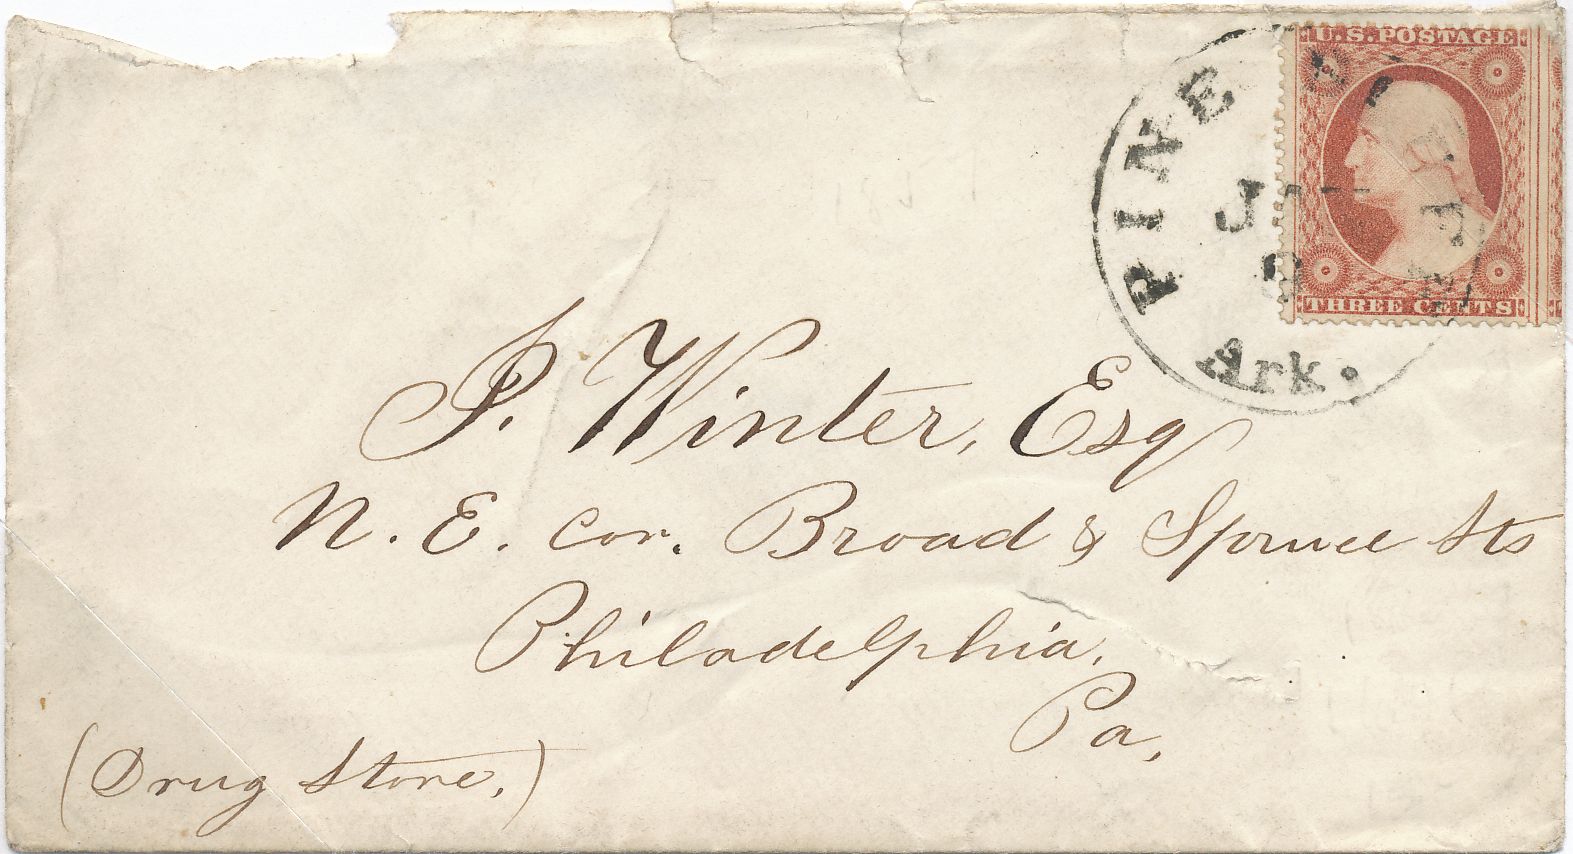 U.S. POSTAGE
PINE
Ark.
THREE CENTS
J. Winter, Esq
N. E. cor. Broad & Spruce Sts
Philadelphia,
Pa,
(Drug Store.)